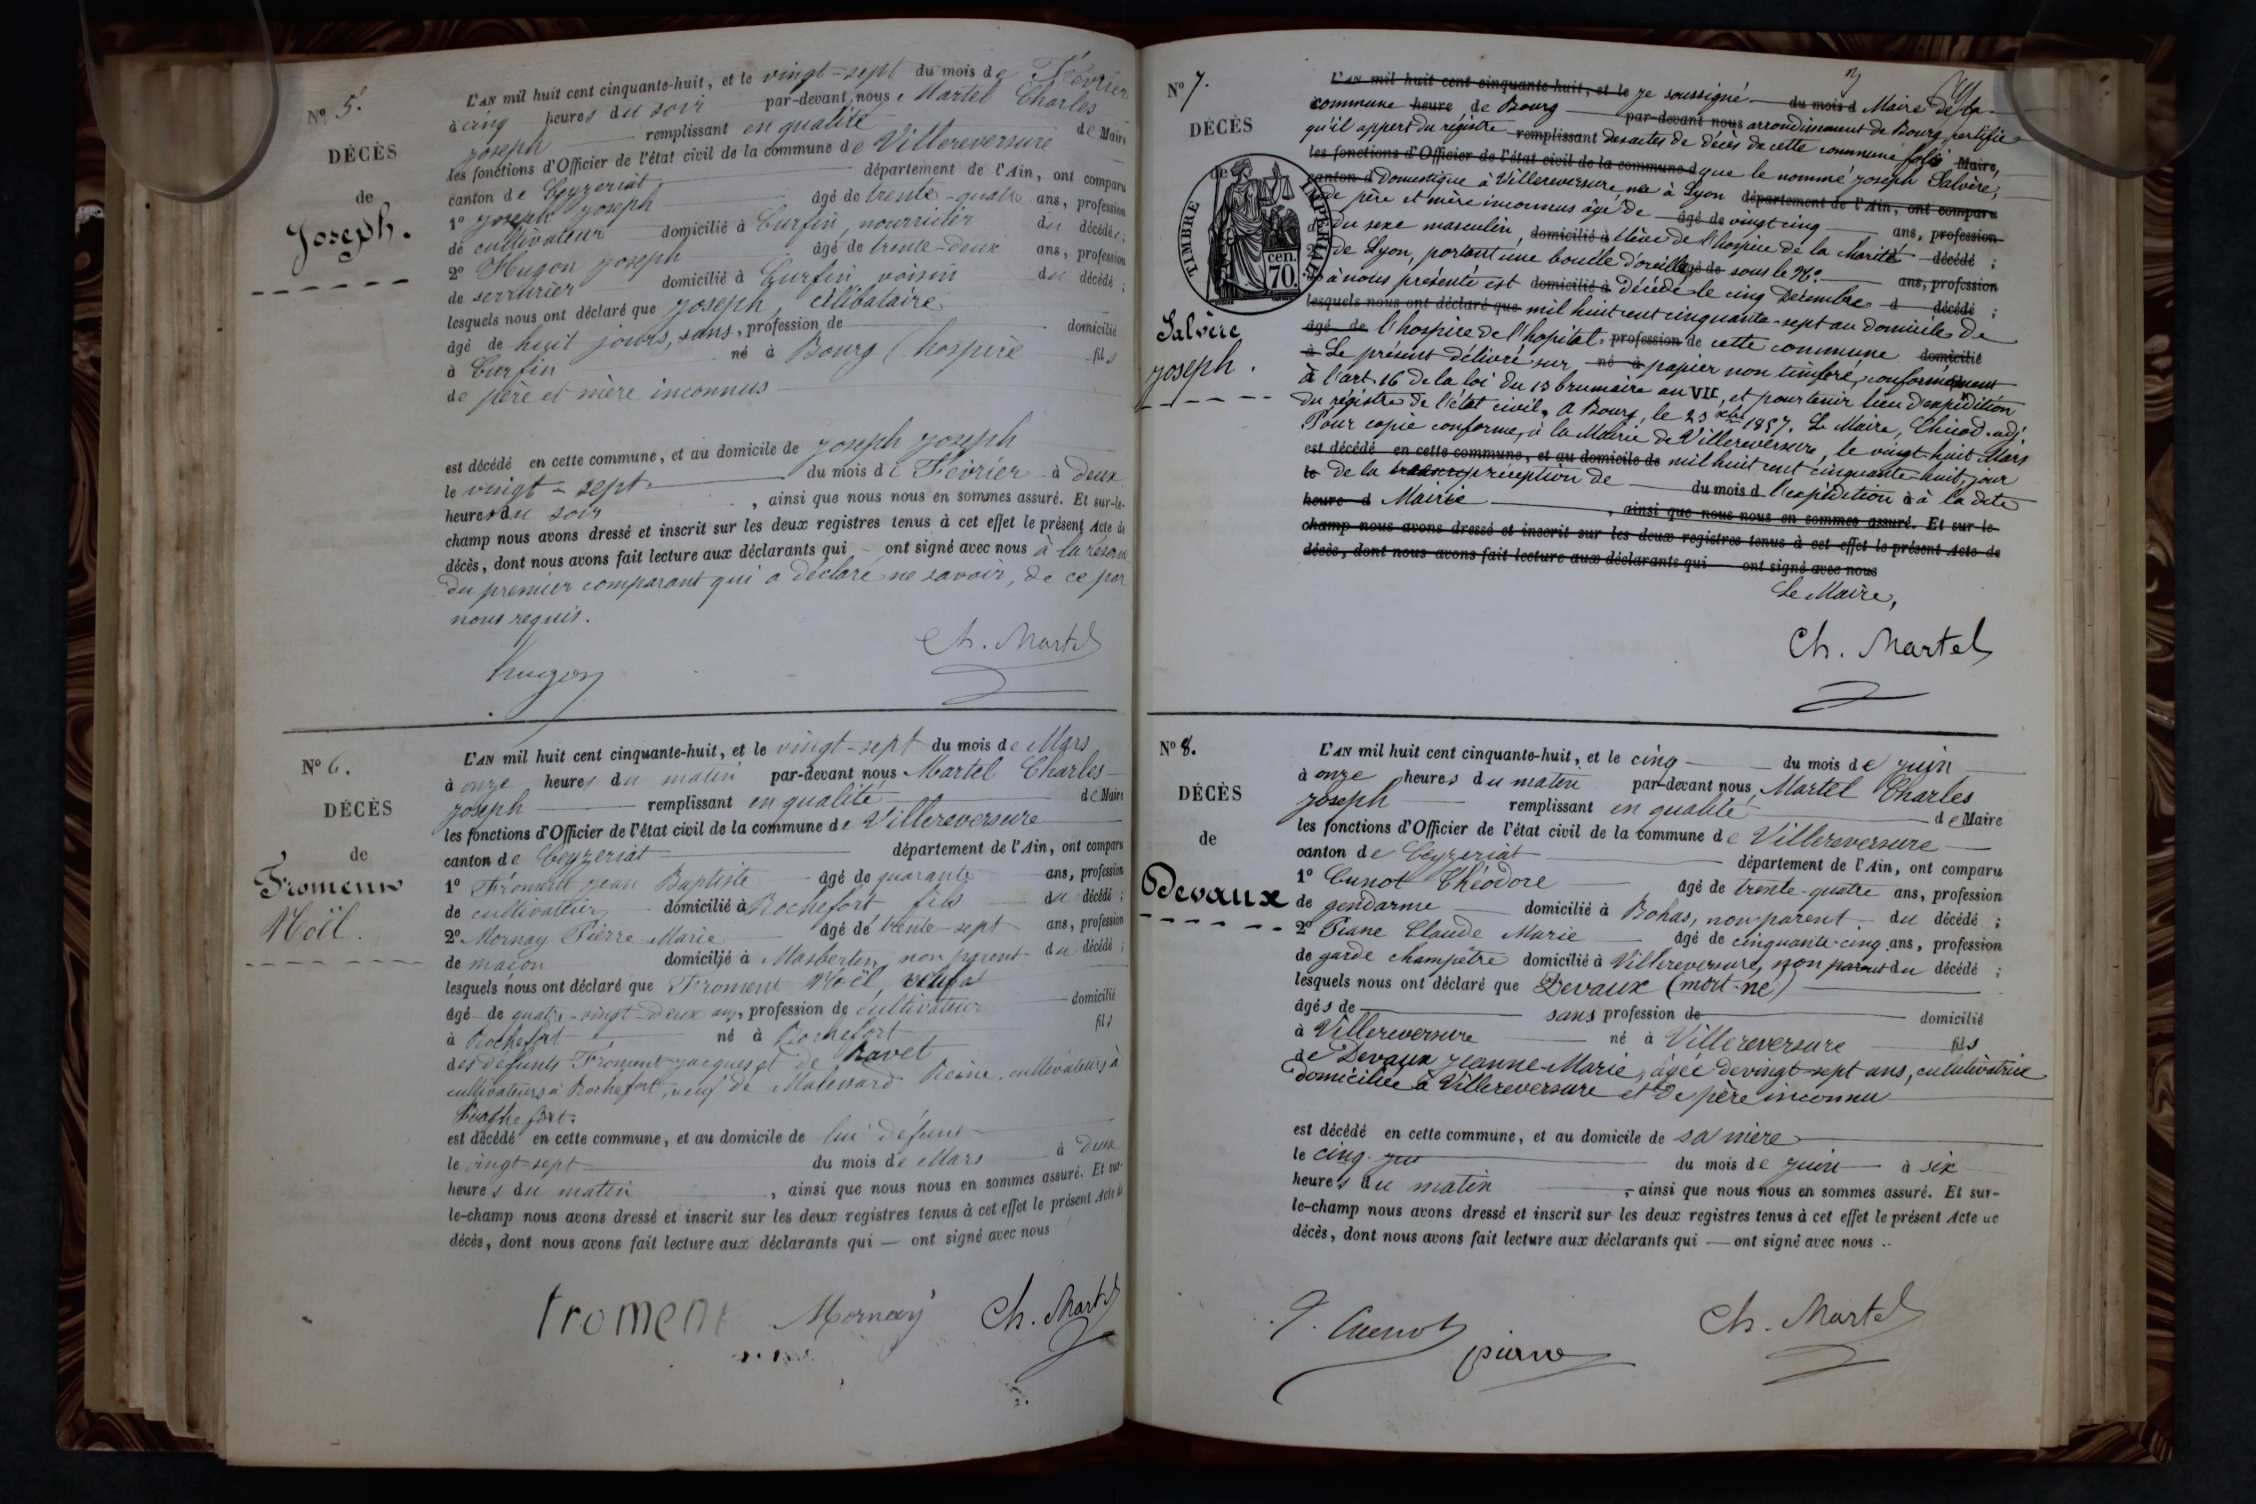 N° 5.
DÉCÈS
de
Joseph.
L'AN mil huit cent cinquante-huit, et le vingt-sept du mois de Février
à cinq heures du soir par-devant nous Martel Charles
Joseph remplissant en qualité de Maire
les fonctions d'Officier de l'état civil de la commune de Villereversure
canton de Ceyzeriat département de l'Ain, ont comparu
1° Joseph Joseph âgé de trente-quatre ans, profession
de cultivateur domicilié à Curfin, nourricier du décédé;
2° Hugon Joseph âgé de trente-deux ans, profession
de serrurier domicilié à Curfin voisin du décédé;
lesquels nous ont déclaré que Joseph, célibataire
âgé de huit jours, sans, profession de domicilié
à Curfin né à Bourg (hospice fils
de père et mère inconnus
est décédé en cette commune, et au domicile de Joseph Joseph
le vingt-sept du mois de Février à deux
heures du soir, ainsi que nous nous en sommes assuré. Et sur-le-
champ nous avons dressé et inscrit sur les deux registres tenus à cet effet le présent Acte de
décès, dont nous avons fait lecture aux déclarants qui ont signé avec nous à la réserve
du premier comparant qui a déclaré ne savoir, de ce par
nous requis.
Hugon Ch. Martel
N° 6.
DÉCÈS
de
Froment
Noël.
L'AN mil huit cent cinquante-huit, et le vingt-sept du mois de Mars
à onze heures du matin par-devant nous Martel Charles
Joseph remplissant en qualité de Maire
les fonctions d'Officier de l'état civil de la commune de Villereversure
canton de Ceyzeriat département de l'Ain, ont comparu
1° Froment Jean Baptiste âgé de quarante ans, profession
de cultivateur domicilié à Rochefort fils du décédé;
2° Mornay Pierre Marie âgé de trente-sept ans, profession
de maçon domicilié à Masbertin, non parent du décédé;
lesquels nous ont déclaré que Froment Noël, veuf
âgé de quatre-vingt-deux ans, profession de cultivateur domicilié
à Rochefort né à Rochefort fils
des défunts Froment Jacques et de Ravet
cultivateurs à Rochefort, veuf de Reine, cultivateurs à
Rochefort.
est décédé en cette commune, et au domicile de lui défunt
le vingt-sept du mois de Mars à deux
heures du matin, ainsi que nous nous en sommes assuré. Et sur-
le-champ nous avons dressé et inscrit sur les deux registres tenus à cet effet le présent Acte de
décès, dont nous avons fait lecture aux déclarants qui ont signé avec nous
froment Mornay Ch. Martel
N° 7.
DÉCÈS
de
TIMBRE IMPÉRIAL
70. cen.
Salvère
Joseph.
L'AN mil huit cent cinquante-huit, et le je soussigné du mois d Maire de la
commune heure de Bourg par-devant nous arrondissement de Bourg, certifie
qu'il appert du régistre remplissant des actes de décès de cette commune folio Maire,
les fonctions d'Officier de l'état civil de la commune d que le nommé Joseph Salvère,
canton d Domestique à Villereversure né à Lyon département de l'Ain, ont comparu
de père et mère inconnus âgé de âgé de vingt cinq ans, profession
d du sexe masculin, domicilié à élève de l'hospice de la Charité décédé;
2° de Lyon, portant une boucle d'oreille, âgé de sous le N° ans, profession
à nous présenté est domicilié à Décédé le cinq Décembre d décédé;
lesquels nous ont déclaré que mil huit cent cinquante-sept au domicile de
âgé de l'hospice de l'hopital, profession de cette commune domicilié
à Le présent délivré sur né à papier non timbré, conformément
à l'art 16 de la loi du 13 brumaire an VII, et pour tenir lieu d'expédition
du régistre de l'état civil. A Bourg, le 23 xbre 1857. Le Maire, Chicod adj.
Pour copie conforme, à la Mairie de Villereversure, le vingt-huit Mars
est décédé en cette commune, et au domicile de mil huit cent cinquante-huit, jour
le de la réception de du mois d l'expédition à la dite
heure d Mairie, ainsi que nous nous en sommes assuré. Et sur-le-
champ nous avons dressé et inscrit sur les deux registres tenus à cet effet le présent Acte de
décès, dont nous avons fait lecture aux déclarants qui ont signé avec nous
Le Maire,
Ch. Martel
N° 8.
DÉCÈS
de
Devaux
L'AN mil huit cent cinquante-huit, et le cinq du mois de juin
à onze heures du matin par-devant nous Martel Charles
Joseph remplissant en qualité de Maire
les fonctions d'Officier de l'état civil de la commune de Villereversure
canton de Ceyzeriat département de l'Ain, ont comparu
1° Cunot Théodore âgé de trente-quatre ans, profession
de gendarme domicilié à Bohas, non parent du décédé;
2° Piane Claude Marie âgé de cinquante-cinq ans, profession
de garde champêtre domicilié à Villereversure, non parent du décédé;
lesquels nous ont déclaré que Devaux (mort-né)
âgés de sans profession de domicilié
à Villereversure né à Villereversure fils
de Devaux Jeanne-Marie, âgée de vingt-sept ans, culutivatrice
domiciliée à Villereversure et de père inconnu
est décédé en cette commune, et au domicile de sa mère
le cinq du mois de juin à six
heures du matin, ainsi que nous nous en sommes assuré. Et sur-
le-champ nous avons dressé et inscrit sur les deux registres tenus à cet effet le présent Acte de
décès, dont nous avons fait lecture aux déclarants qui ont signé avec nous
Ch. Martel